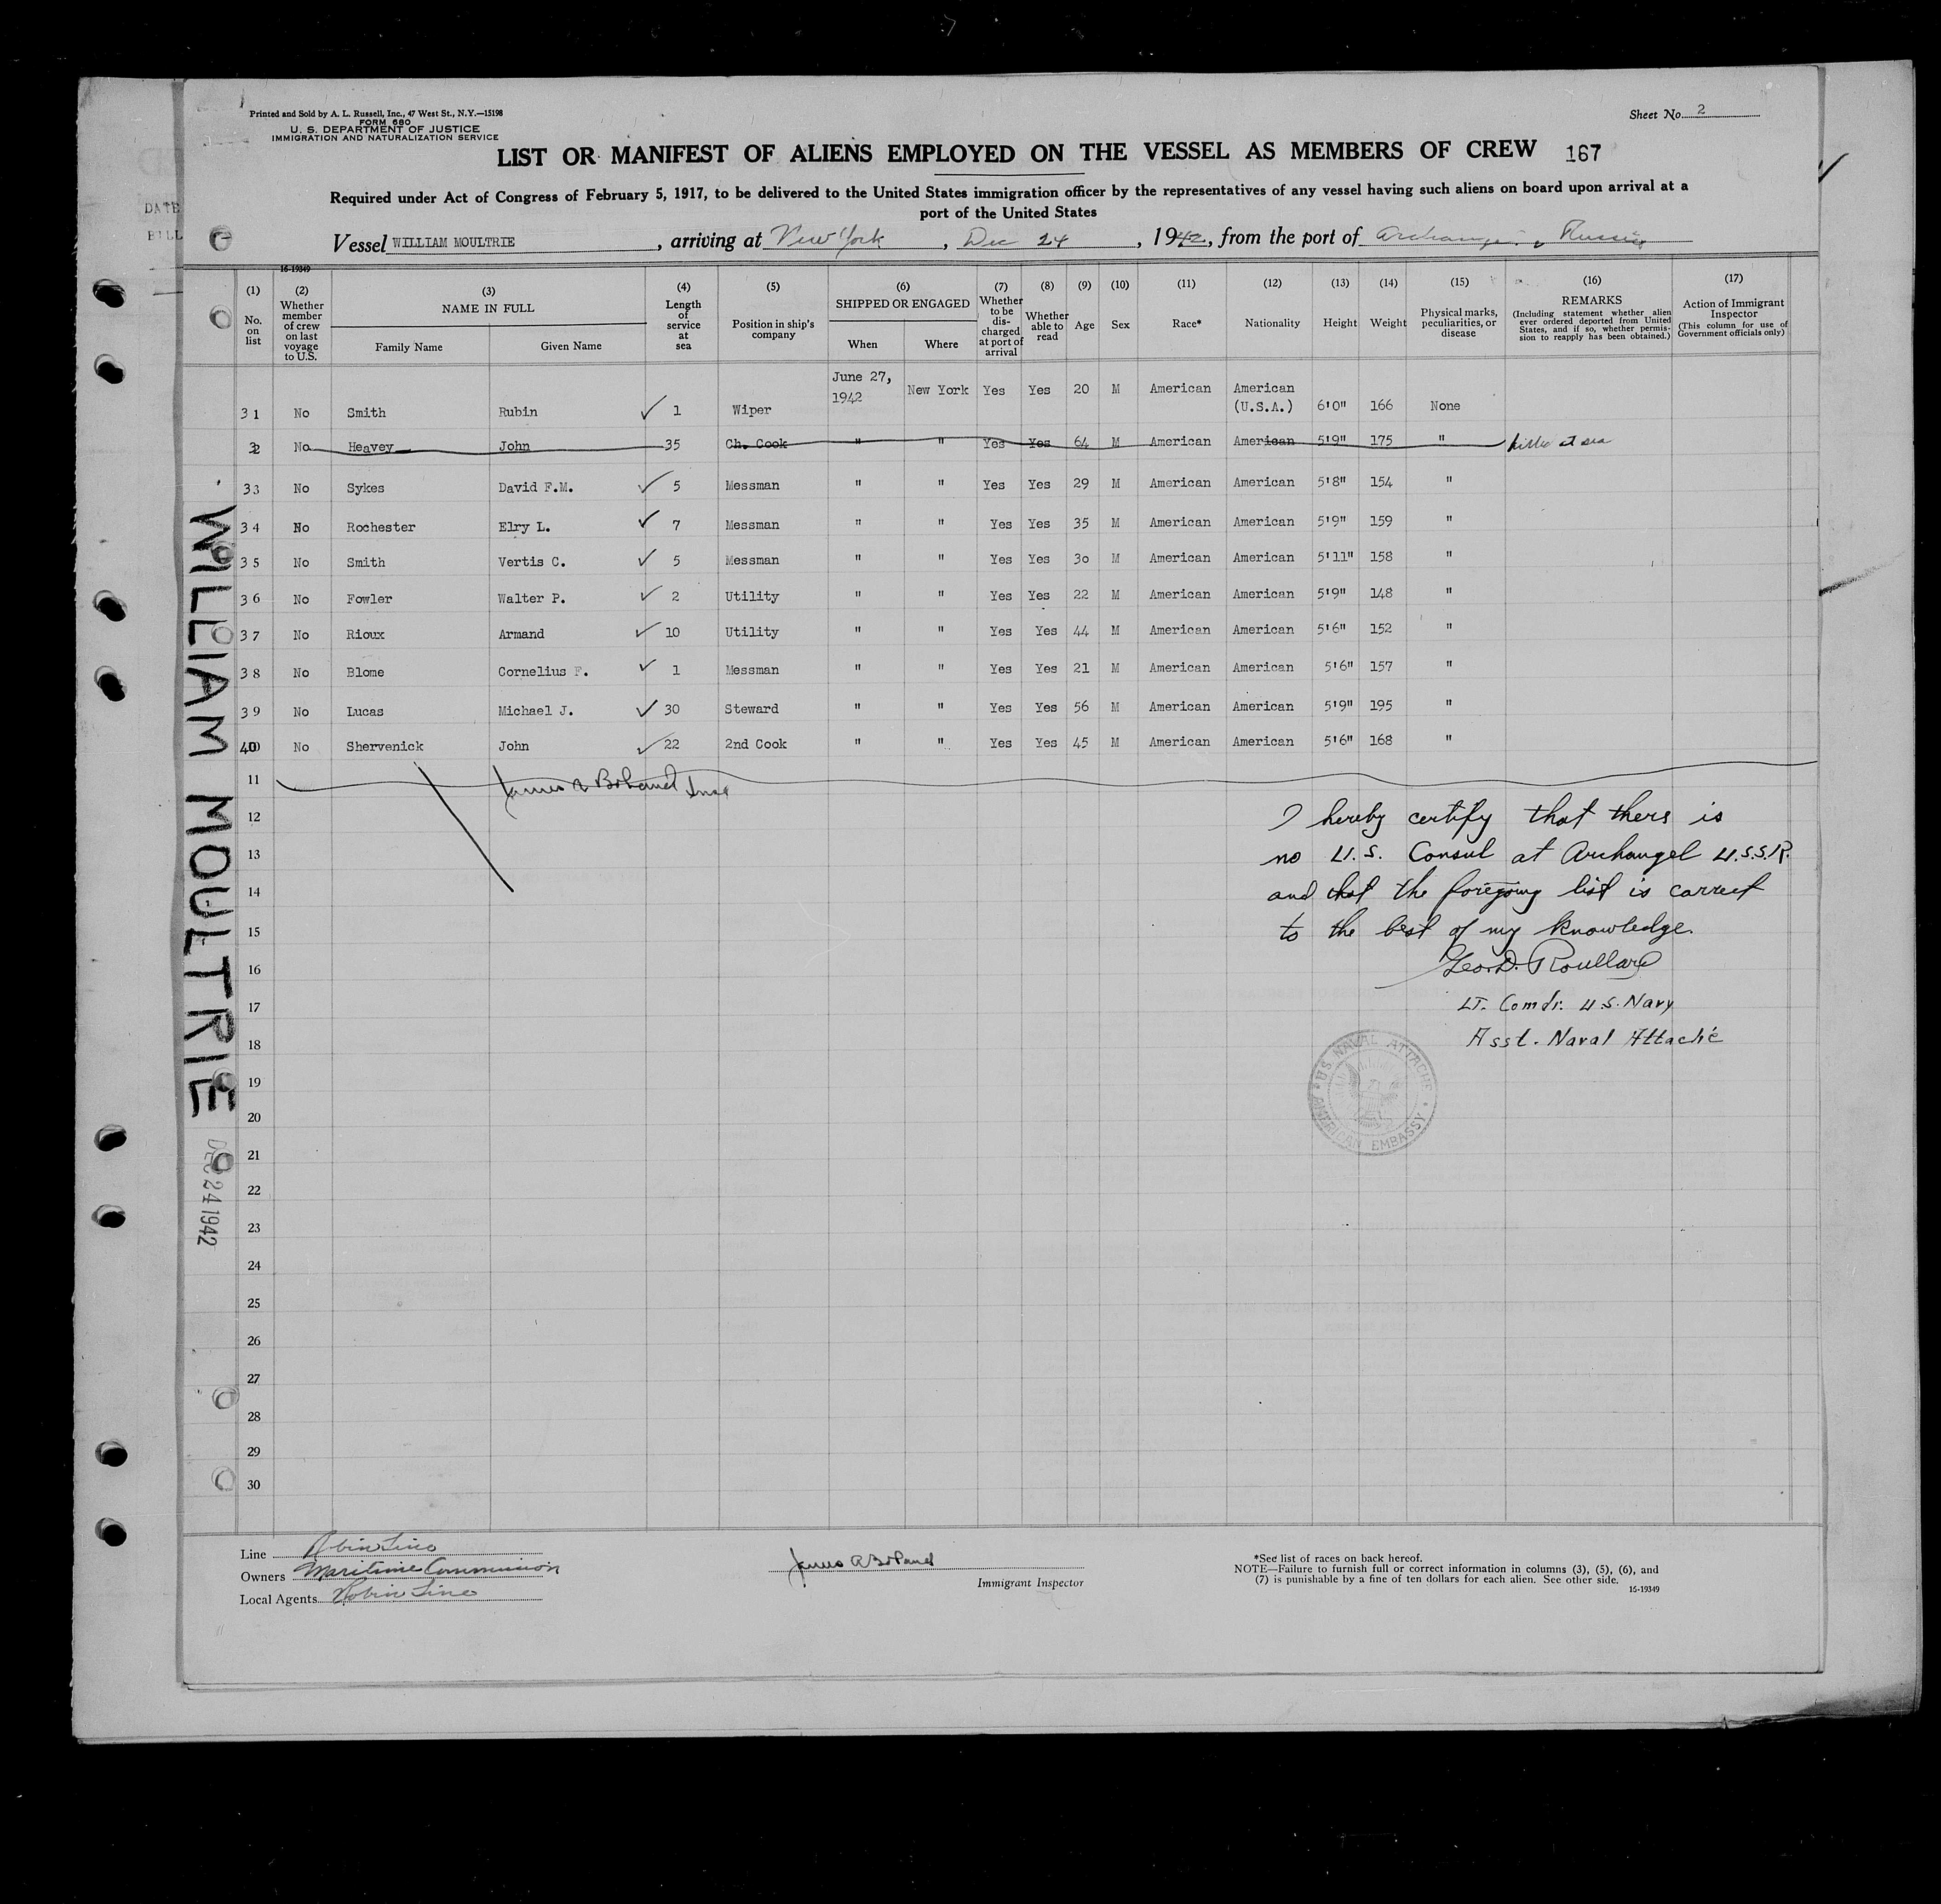 Printed and Sold by A. L. Russell, Inc., 47 West St., N.Y.—15198
FORM 680
U. S. DEPARTMENT OF JUSTICE
IMMIGRATION AND NATURALIZATION SERVICE
Sheet No. 2
LIST OR MANIFEST OF ALIENS EMPLOYED ON THE VESSEL AS MEMBERS OF CREW 167
Required under Act of Congress of February 5, 1917, to be delivered to the United States immigration officer by the representatives of any vessel having such aliens on board upon arrival at a
port of the United States
DATE
BILL
Vessel WILLIAM MOULTRIE, arriving at New York, Dec 24, 1942, from the port of Archangel, Russia
16-19349
(1) No. on list
(2) Whether member of crew on last voyage to U.S.
(3) NAME IN FULL Family Name Given Name
(4) Length of service at sea
(5) Position in ship's company
(6) SHIPPED OR ENGAGED When Where
(7) Whether to be discharged at port of arrival
(8) Whether able to read
(9) Age
(10) Sex
(11) Race*
(12) Nationality
(13) Height
(14) Weight
(15) Physical marks, peculiarities, or disease
(16) REMARKS (Including statement whether alien ever ordered deported from United States, and if so, whether permission to reapply has been obtained.)
(17) Action of Immigrant Inspector (This column for use of Government officials only)
31 No Smith Rubin ✓ 1 Wiper June 27, 1942 New York Yes Yes 20 M American American (U.S.A.) 6'0" 166 None
2 No Heavey John 35 Ch. Cook " " Yes Yes 64 M American American 5'9" 175 " killed at sea
33 No Sykes David F.M. ✓ 5 Messman " " Yes Yes 29 M American American 5'8" 154 "
34 No Rochester Elry L. ✓ 7 Messman " " Yes Yes 35 M American American 5'9" 159 "
35 No Smith Vertis C. ✓ 5 Messman " " Yes Yes 30 M American American 5'11" 158 "
36 No Fowler Walter P. ✓ 2 Utility " " Yes Yes 22 M American American 5'9" 148 "
37 No Rioux Armand ✓ 10 Utility " " Yes Yes 44 M American American 5'6" 152 "
38 No Blome Cornelius F. ✓ 1 Messman " " Yes Yes 21 M American American 5'6" 157 "
39 No Lucas Michael J. ✓ 30 Steward " " Yes Yes 56 M American American 5'9" 195 "
40 No Shervenick John ✓ 22 2nd Cook " " Yes Yes 45 M American American 5'6" 168 "
11 James A Boland Insp
12
13
14
15
16
17
18
19
20
21
22
23
24
25
26
27
28
29
30
I hereby certify that there is
no U.S. Consul at Archangel U.S.S.R.
and that the foregoing list is correct
to the best of my knowledge.
Geo. D. Roullard
Lt. Comdr. U.S. Navy
Asst. Naval Attaché
U.S. NAVAL ATTACHE
AMERICAN EMBASSY
WILLIAM MOULTRIE
DEC 24 1942
Line Robin Line
Owners Maritime Commission
Local Agents Robin Line
James A Boland
Immigrant Inspector
*See list of races on back hereof.
NOTE—Failure to furnish full or correct information in columns (3), (5), (6), and
(7) is punishable by a fine of ten dollars for each alien. See other side.
16-19349